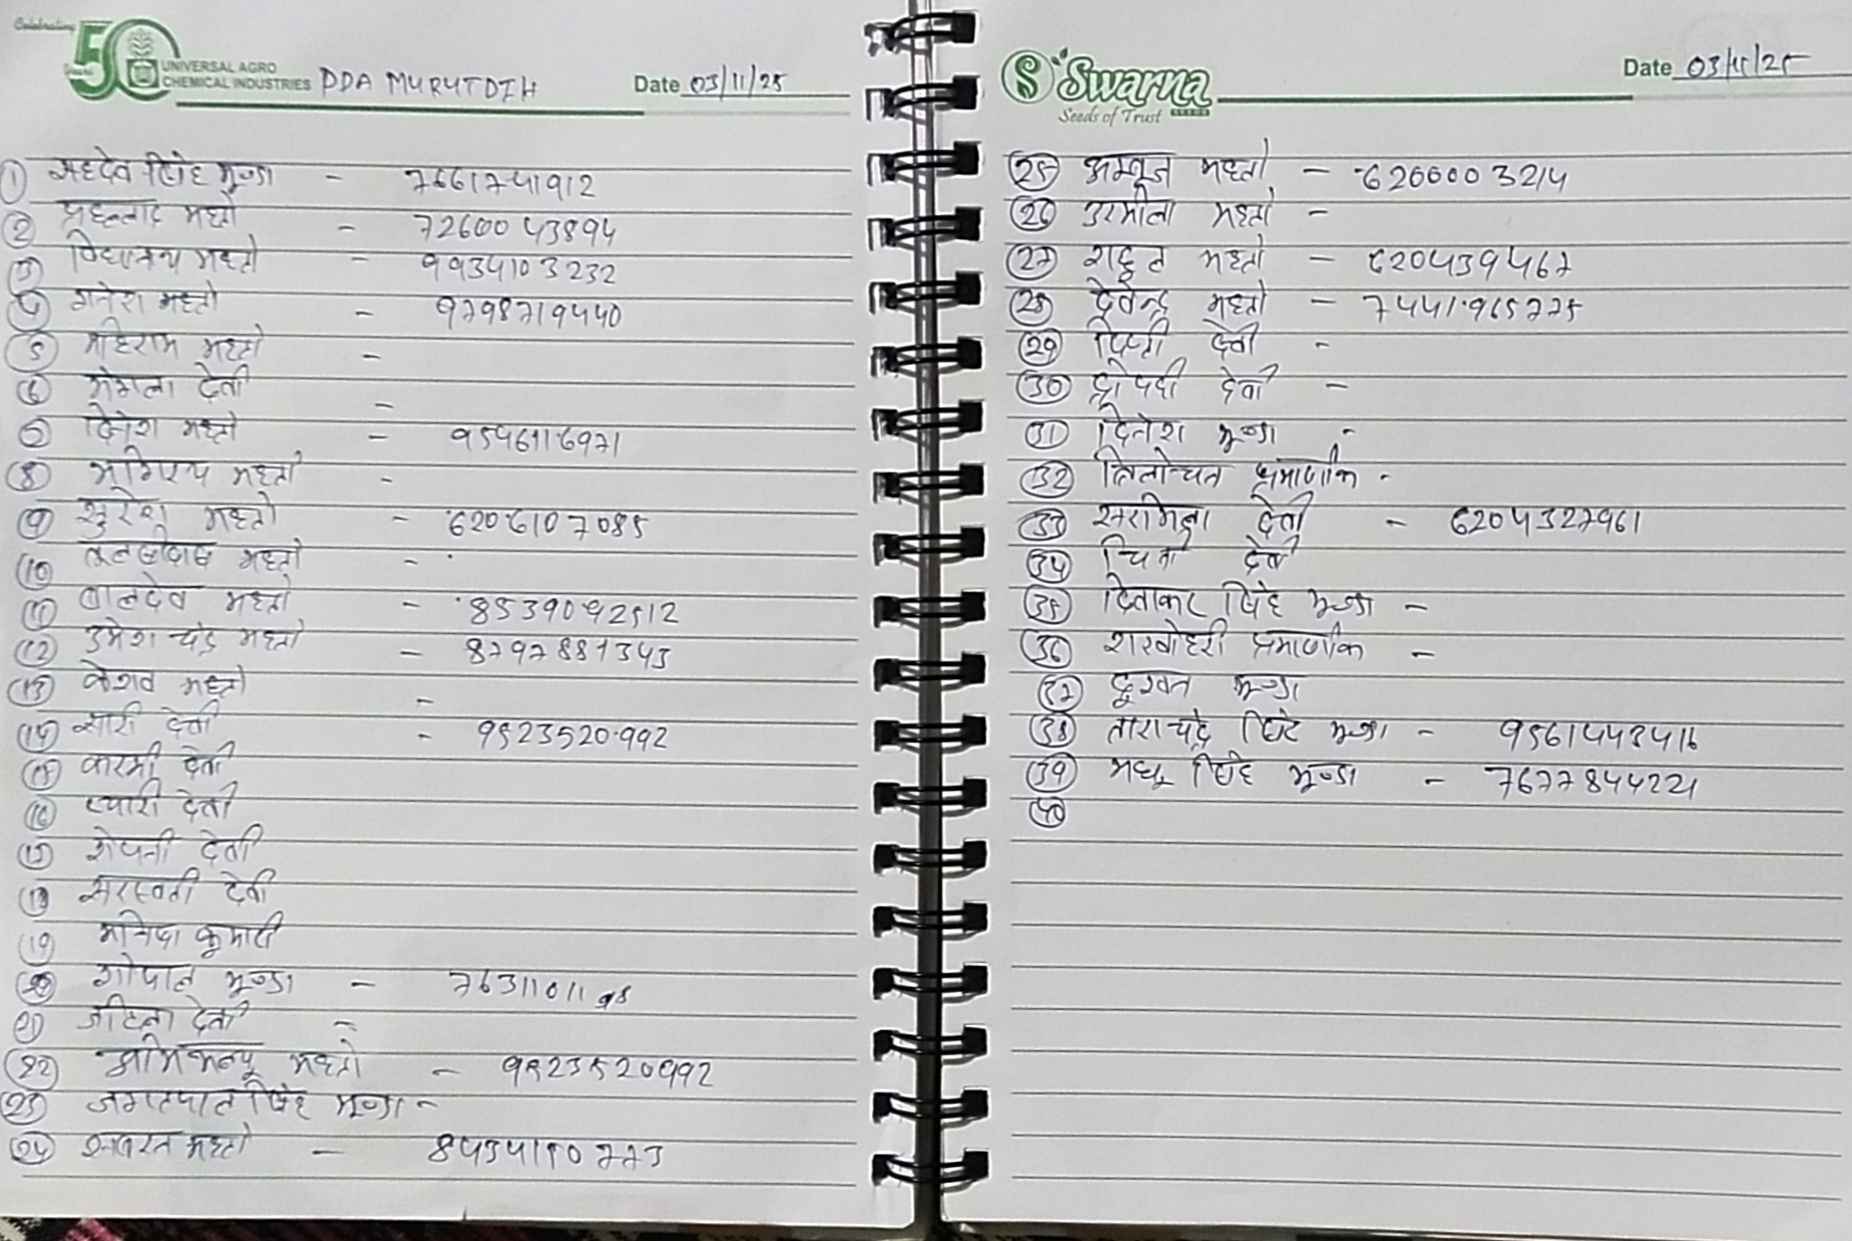 Celebrating
50
UNIVERSAL AGRO
CHEMICAL INDUSTRIES PDA MURUTDIH Date 03/11/25
① सहदेव सिंह मुण्डा - 7661741912
② प्रहल्लाद महतो - 7260043894
③ विद्यानय महतो - 9934103232
④ गनेश महतो - 9798719440
⑤ महतो -
⑥ मंगला देवी -
⑦ दिनेश महतो - 9546116971
⑧ महतो -
⑨ सुरेश महतो - 6206107085
⑩ महतो -
⑪ बालदेव महतो - 8539092512
⑫ उमेश चंद्र महतो - 8797881343
⑬ केशव महतो -
⑭ सारी देवी - 9523520992
⑮ करमी देवी
⑯ प्यारी देवी
⑰ देवी
⑱ सरस्वती देवी
⑲ कुमारी
⑳ गोपाल मुण्डा - 7631101198
㉑ देवी -
㉒ अभिमन्यू महतो - 9523520992
㉓ जगतपाल सिंह मुण्डा -
㉔ महतो - 8434150773
Swarna
Seeds of Trust SEEDS Date 03/11/25
㉕ अम्बूज महतो - 6200003214
㉖ उरमीला महतो -
㉗ राहुल महतो - 620439467
㉘ देवेन्द्र महतो - 7441965775
㉙ देवी -
㉚ द्रोपदी देवी -
㉛ दिनेश मुण्डा -
㉜ त्रिलोचन प्रमाणीक -
㉝ देवी - 6204327961
㉞ देवी
㉟ दिवाकर सिंह मुण्डा -
㊱ प्रमाणीक -
㊲ मुण्डा
㊳ ताराचंद्र सिंह मुण्डा - 9561443416
㊴ मधू सिंह मुण्डा - 7677844221
㊵